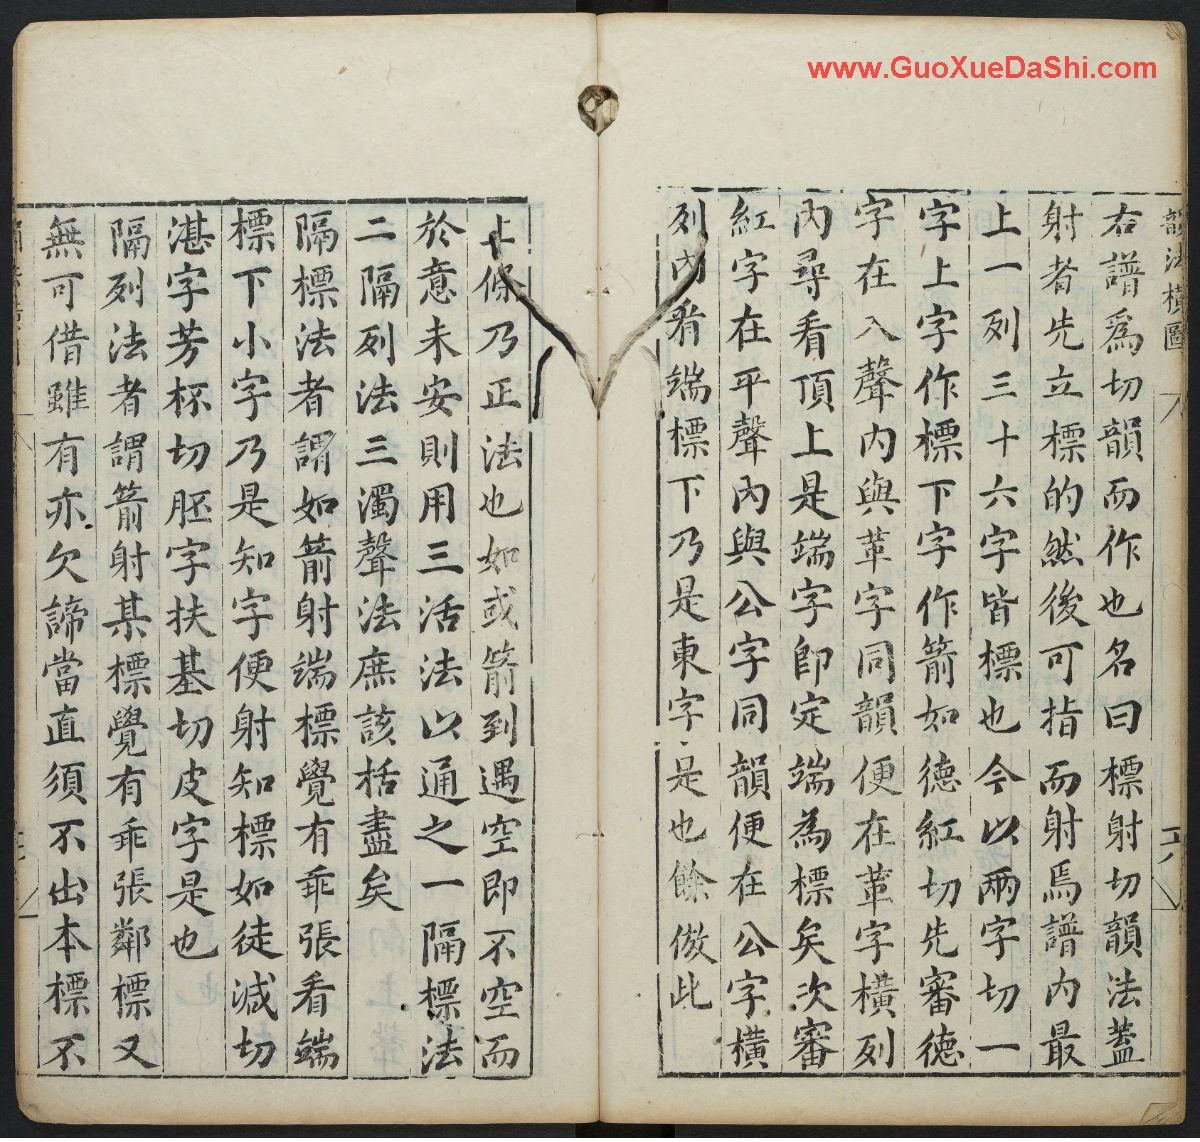 www.GuoXueDaShi.com
韻法橫圖
右譜爲切韻而作也名曰標射切韻法蓋
射者先立標的然後可指而射焉譜內最
上一列三十六字皆標也今以兩字切一
字上字作標下字作箭如德紅切先審德
字在入聲內與革字同韻便在革字橫列
內尋看頂上是端字卽定端為標矣次審
紅字在平聲內與公字同韻便在公字橫
列內看端標下乃是東字是也餘倣此
上條乃正法也如或箭到遇空即不空而
於意未安則用三活法以通之一隔標法
二隔列法三濁聲法庶該括盡矣
隔標法者謂如箭射端標覺有乖張看端
標下小字乃是知字便射知標如徒減切
湛字芳杯切胚字扶基切皮字是也
隔列法者謂箭射某標覺有乖張鄰標又
無可借雖有亦欠諦當直須不出本標不